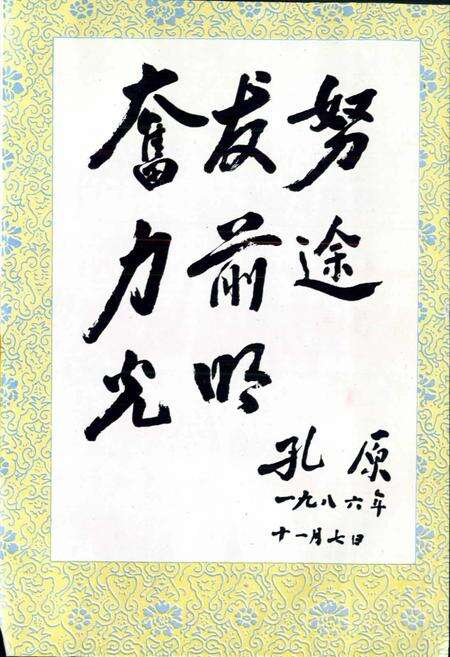 奮发努
力前途
光明
孔原
一九八六年
十一月七日